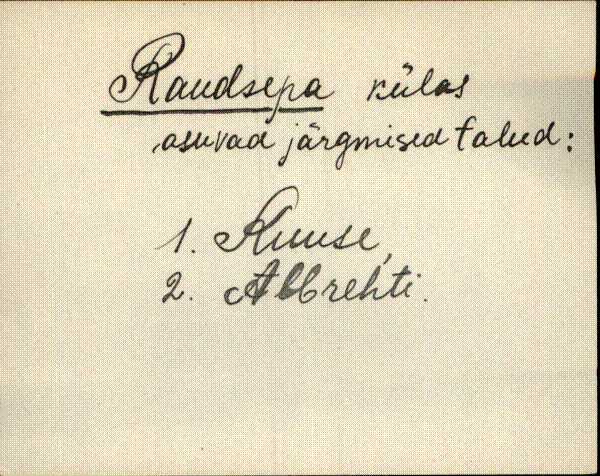 Raudsepa külas
asuvad järgmised talud:
1. Kuuse,
2. Albrehti.